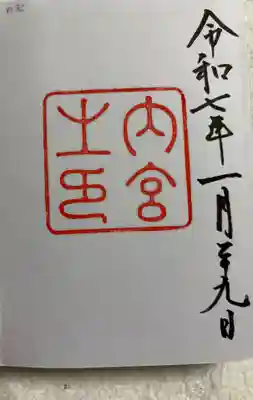 令和七年一月二十九日
内宮
之印